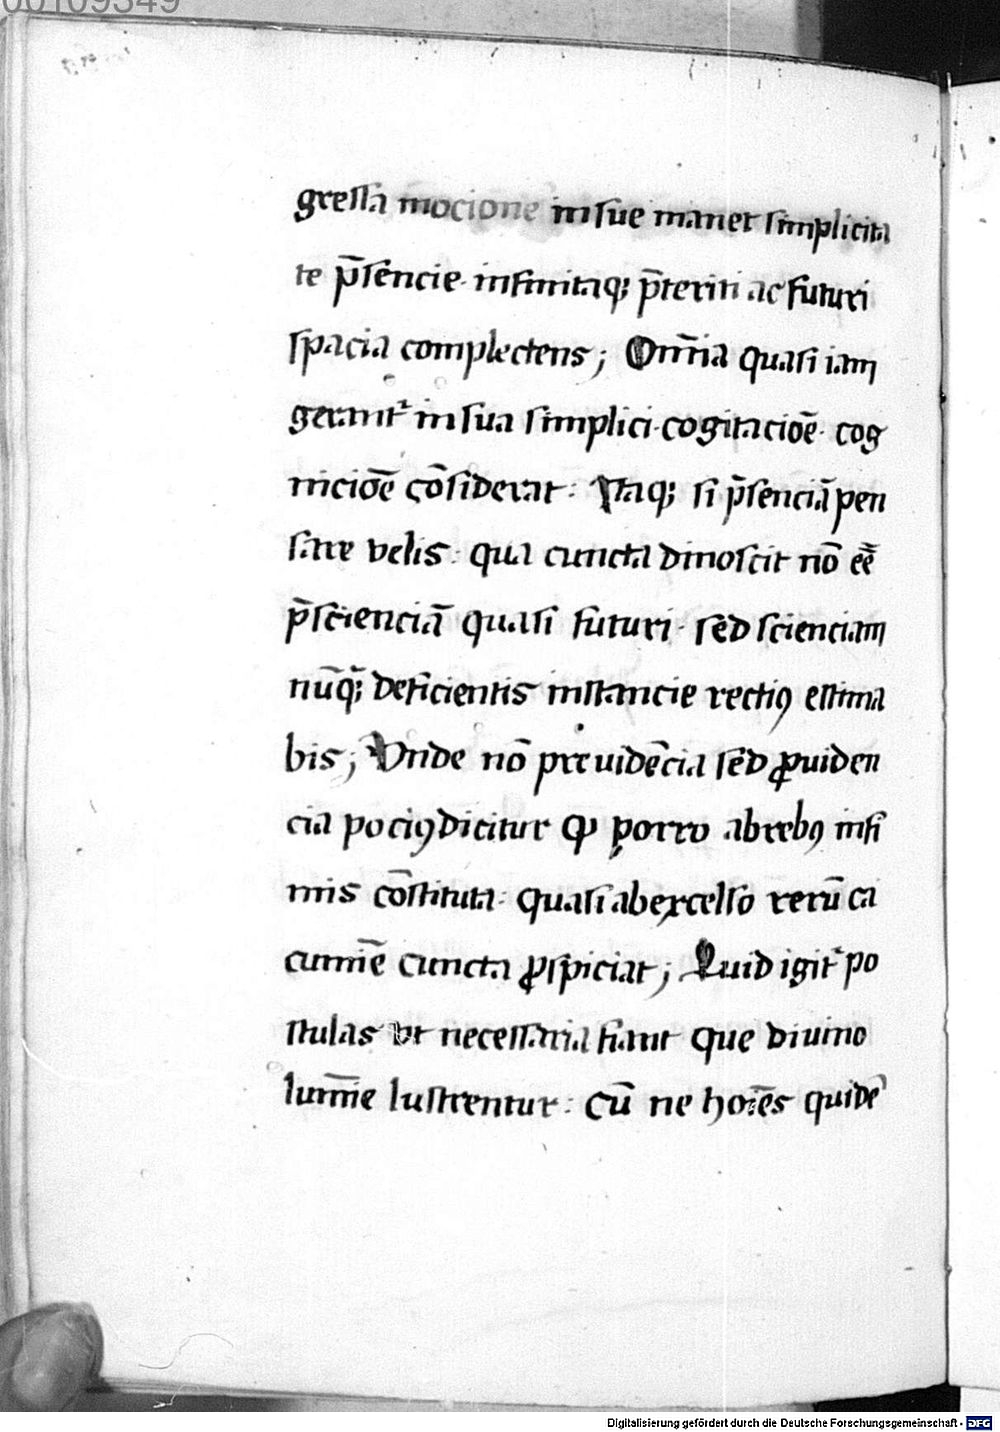 00109349
gressa mocione in sue manet simplicita
te p̄sencie· infinitaq; p̄teriti ac futuri
spacia complectens; Om̄ia quasi iam
gerant᷑ in sua simplici·cogitacioē· cog
nicioē cōsiderat: Itaq; si p̄senciā pen
sare velis· qua cuncta dinoscit nō eē̄
p̄scienciā quasi futuri· sed scienciam
nūq̄; deficientis instancie rectiꝰ estima
bis; Vnde nō preuidēcia sed ꝓuiden
cia pociꝰ dicitur ꝙ porro ab rebꝰ infi
mis cōstituta· quasi ab excelso rerū ca
cumiē cuncta ꝓspiciat; Quid igit᷑ po
stulas vt necessaria fiant que diuino
lum̄ie lustrentur: Cū ne hoīes quidē
Digitalisierung gefördert durch die Deutsche Forschungsgemeinschaft - DFG